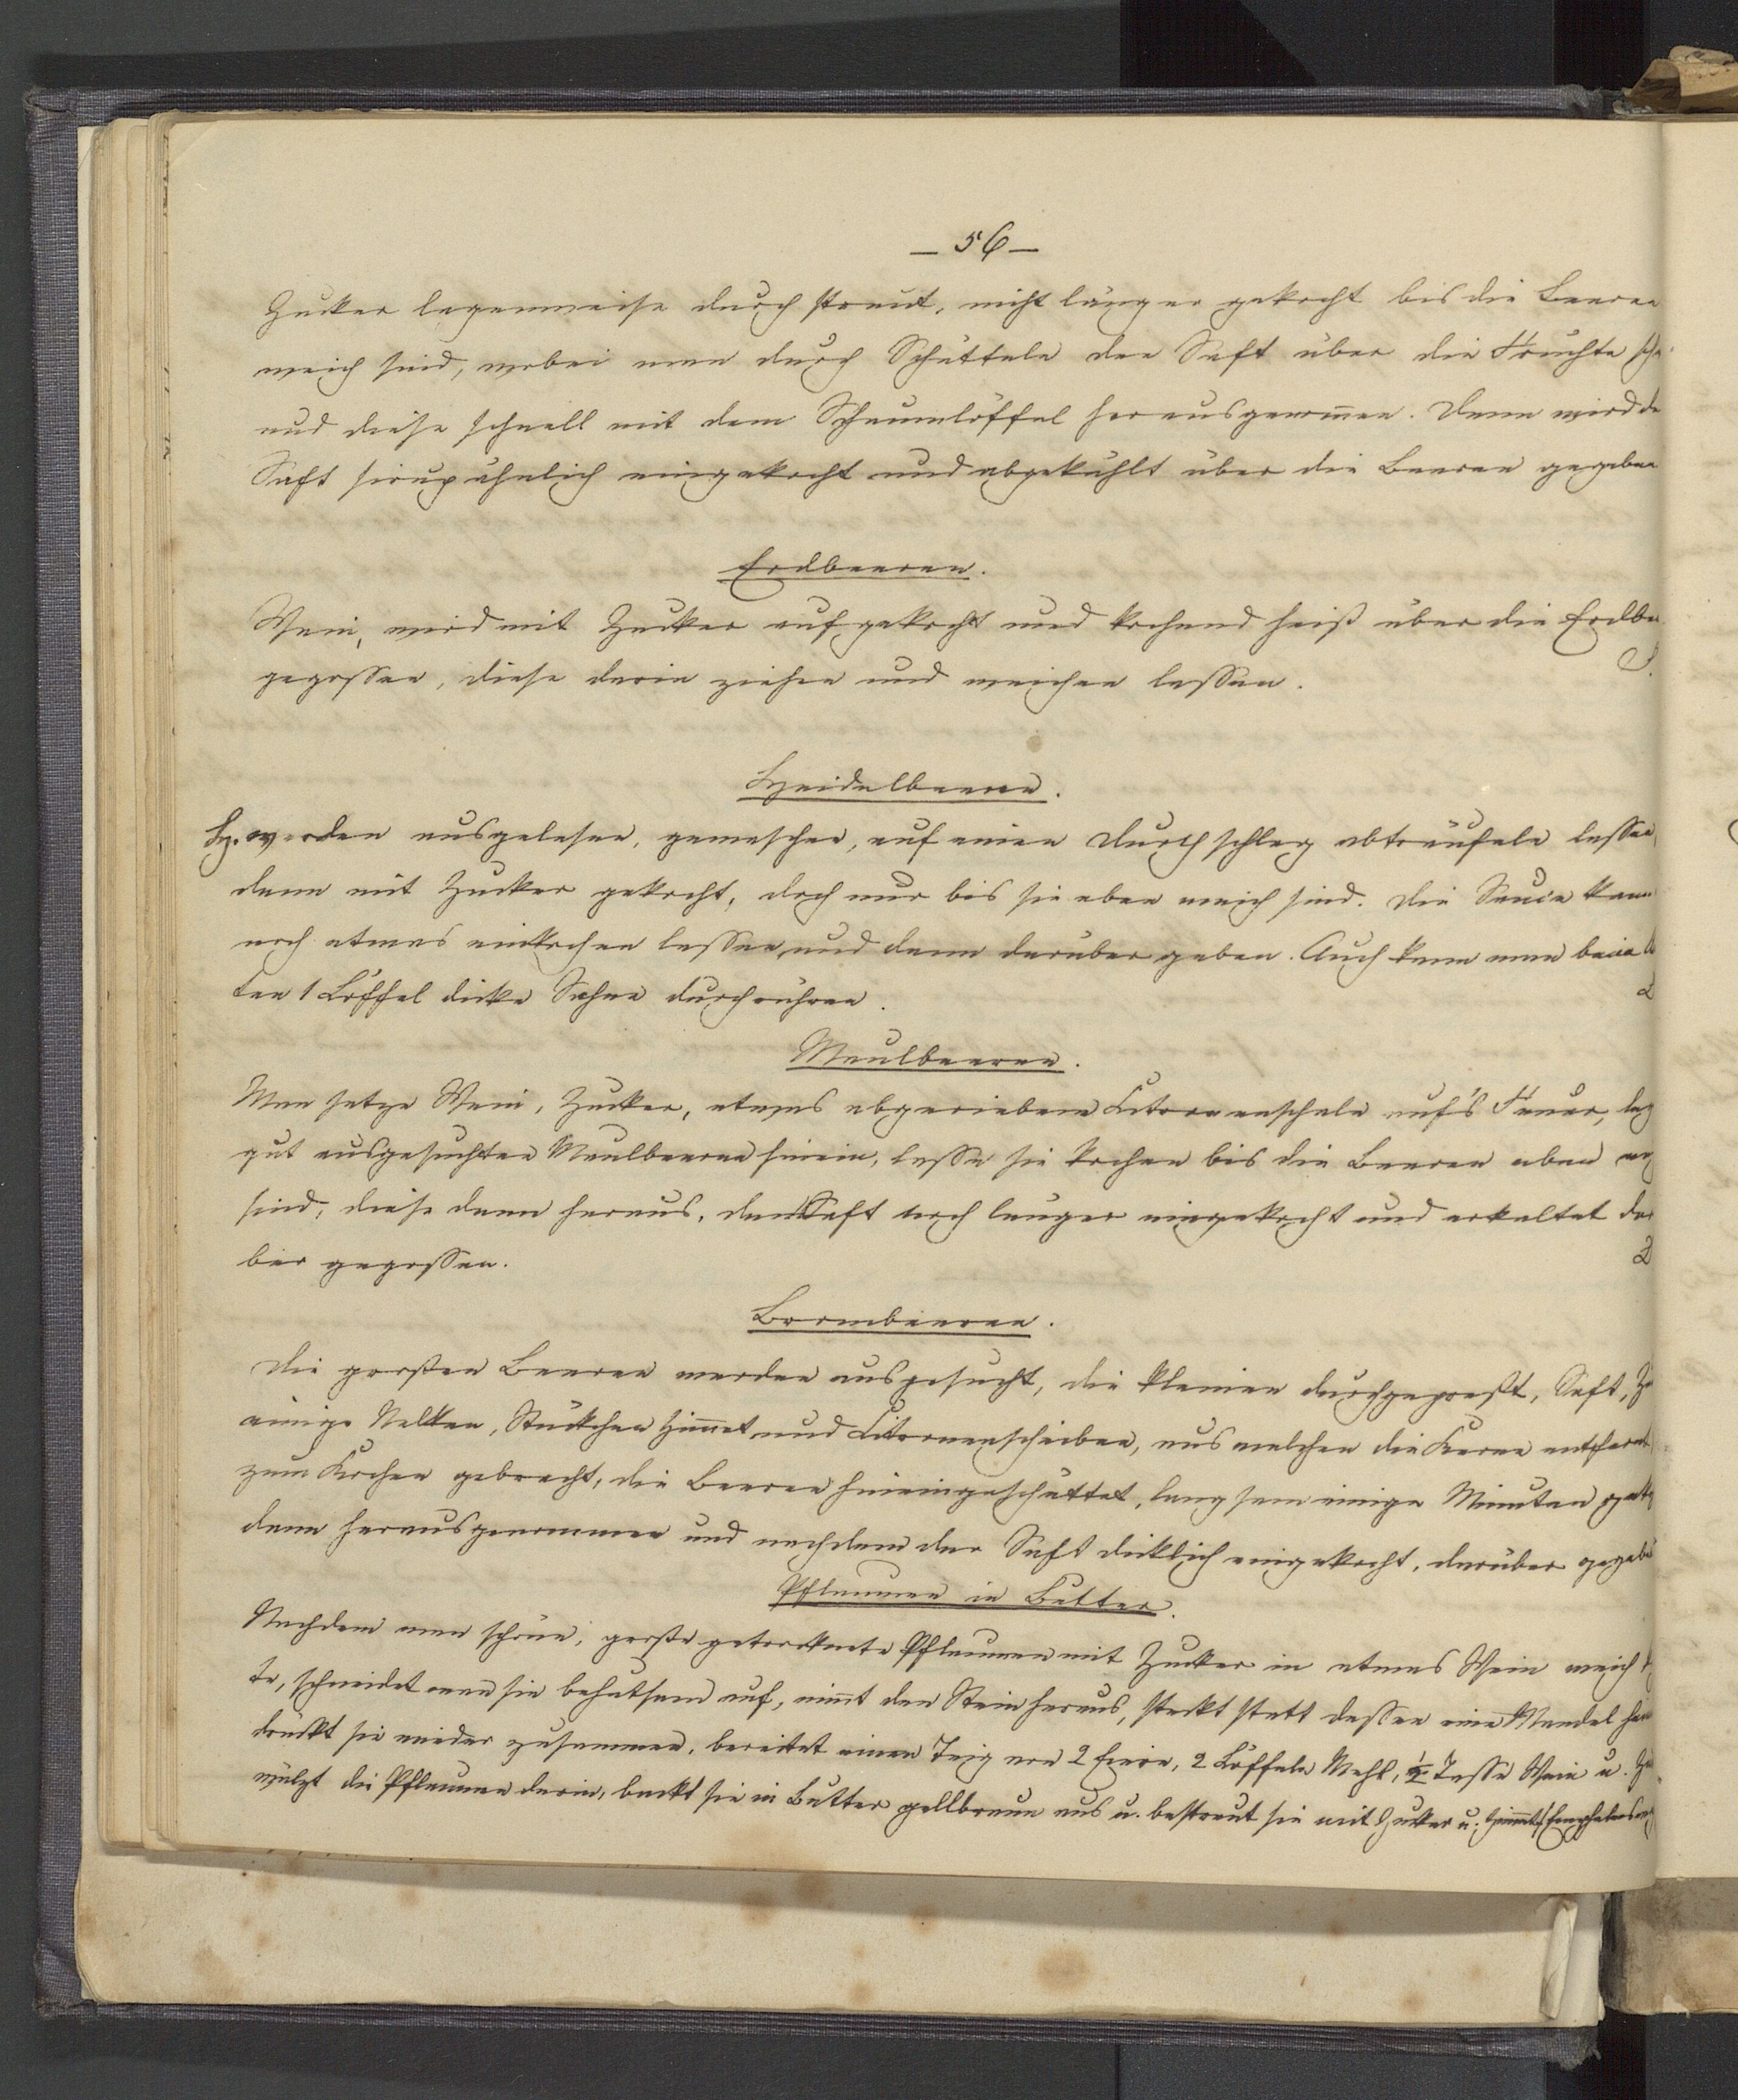 – 56 –
Zucker lagenweise durch streut, nicht länger gekocht bis die Beeren
weich sind, wobei man durch Schütteln den Saft über die Früchte
und diese schnell mit dem Schaumlöffel herausgenommen. Dann wird de
Saft sirupähnlich eingekocht und abgekühlt über die Beeren gegeben
Erdbeeren.
Wein, wird mit Zucker aufgekocht und kochend heiß über die Erdbe
gegossen, diese darin ziehen und weichen lassen.
Heidelbeeren.
H. werden ausgelesen, gewaschen, auf einen Durchschlag abträufeln lassen,
dann mit Zucker gekocht, doch nur bis sie eben weich sind. Die Sauce kann
noch etwas einkochen lassen und dann darüber geben. Auch kann man beim
ten 1 Löffel dicke Sahne durchrühren.
Maulbeeren.
Man setze Wein, Zucker, etwas abgeriebene Citronenschale auf's Feuer, leg
gut ausgesuchten Maulbeeren hinein, lasse sie kochen bis die Beeren eben
sind, diese dann heraus, den Saft noch länger eingekocht und erkaltet dar
ber gegossen.
Brombeeren.
Die großen Beeren werden ausgesucht, die kleinen durchgepreßt, Saft, Zu
einige Nelken, Stückchen Zimmet und Citronenscheiben, aus welchen die Kerne entfernt
zum Kochen gebracht, die Beeren hineingeschüttet, langsam einige Minuten gek
dann herausgenommen und nachdem der Saft dicklich eingekocht, darüber gegebe
Pflaumen in Butter.
Nachdem man schöne, große getrocknete Pflaumen mit Zucker in etwas Wein weich
te, schneidet man sie behutsam auf, nimt den Stein heraus, steckt statt dessen eine Mandel
drückt sie wieder zusammen, bereitet einen Teig von 2 Eiern, 2 Löffeln Mehl, ½ Tasse Wein u. Zu
wälzt die Pflaumen darin, backt sie in Butter gellbraun aus u. bestreut sie mit Zucker u. Zimmt